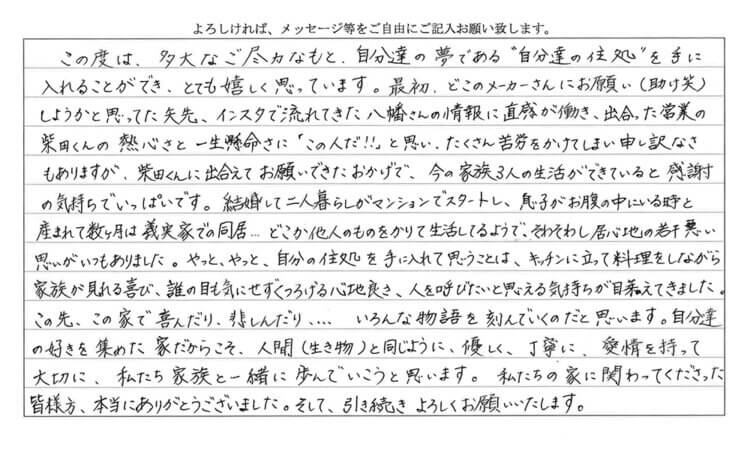 よろしければ、メッセージ等をご自由にご記入お願い致します。
この度は、多大なご尽力なもと、自分達の夢である"自分達の住処"を手に
入れることができ、とても嬉しく思っています。最初、どこのメーカーさんにお願い(助け笑)
しようかと思ってた矢先、インスタで流れてきた八幡さんの情報に直感が働き、出合った営業の
柴田くんの熱心さと一生懸命さに「この人だ!!」と思い、たくさん苦労をかけてしまい申し訳なさ
もありますが、柴田くんに出合えてお願いできたおかげで、今の家族3人の生活ができていると感謝
の気持ちでいっぱいです。結婚して二人暮らしがマンションでスタートし、息子がお腹の中にいる時と
産まれて数ヶ月は義実家での同居… どこか他人のものをかりて生活してるようで、そわそわし居心地の若干悪い
思いがいつもありました。やっと、やっと、自分の住処を手に入れて思うことは、キッチンに立って料理をしながら
家族が見れる喜び、誰の目も気にせずくつろげる心地良さ、人を呼びたいと思える気持ちが目芽えてきました。
この先、この家で喜んだり、悲しんだり、… いろんな物語を刻んでいくのだと思います。自分達
の好きを集めた家だからこそ、人間(生き物)と同じように、優しく、丁寧に、愛情を持って
大切に、私たち家族と一緒に歩んでいこうと思います。私たちの家に関わってくださった
皆様方、本当にありがとうございました。そして、引き続きよろしくお願いいたします。